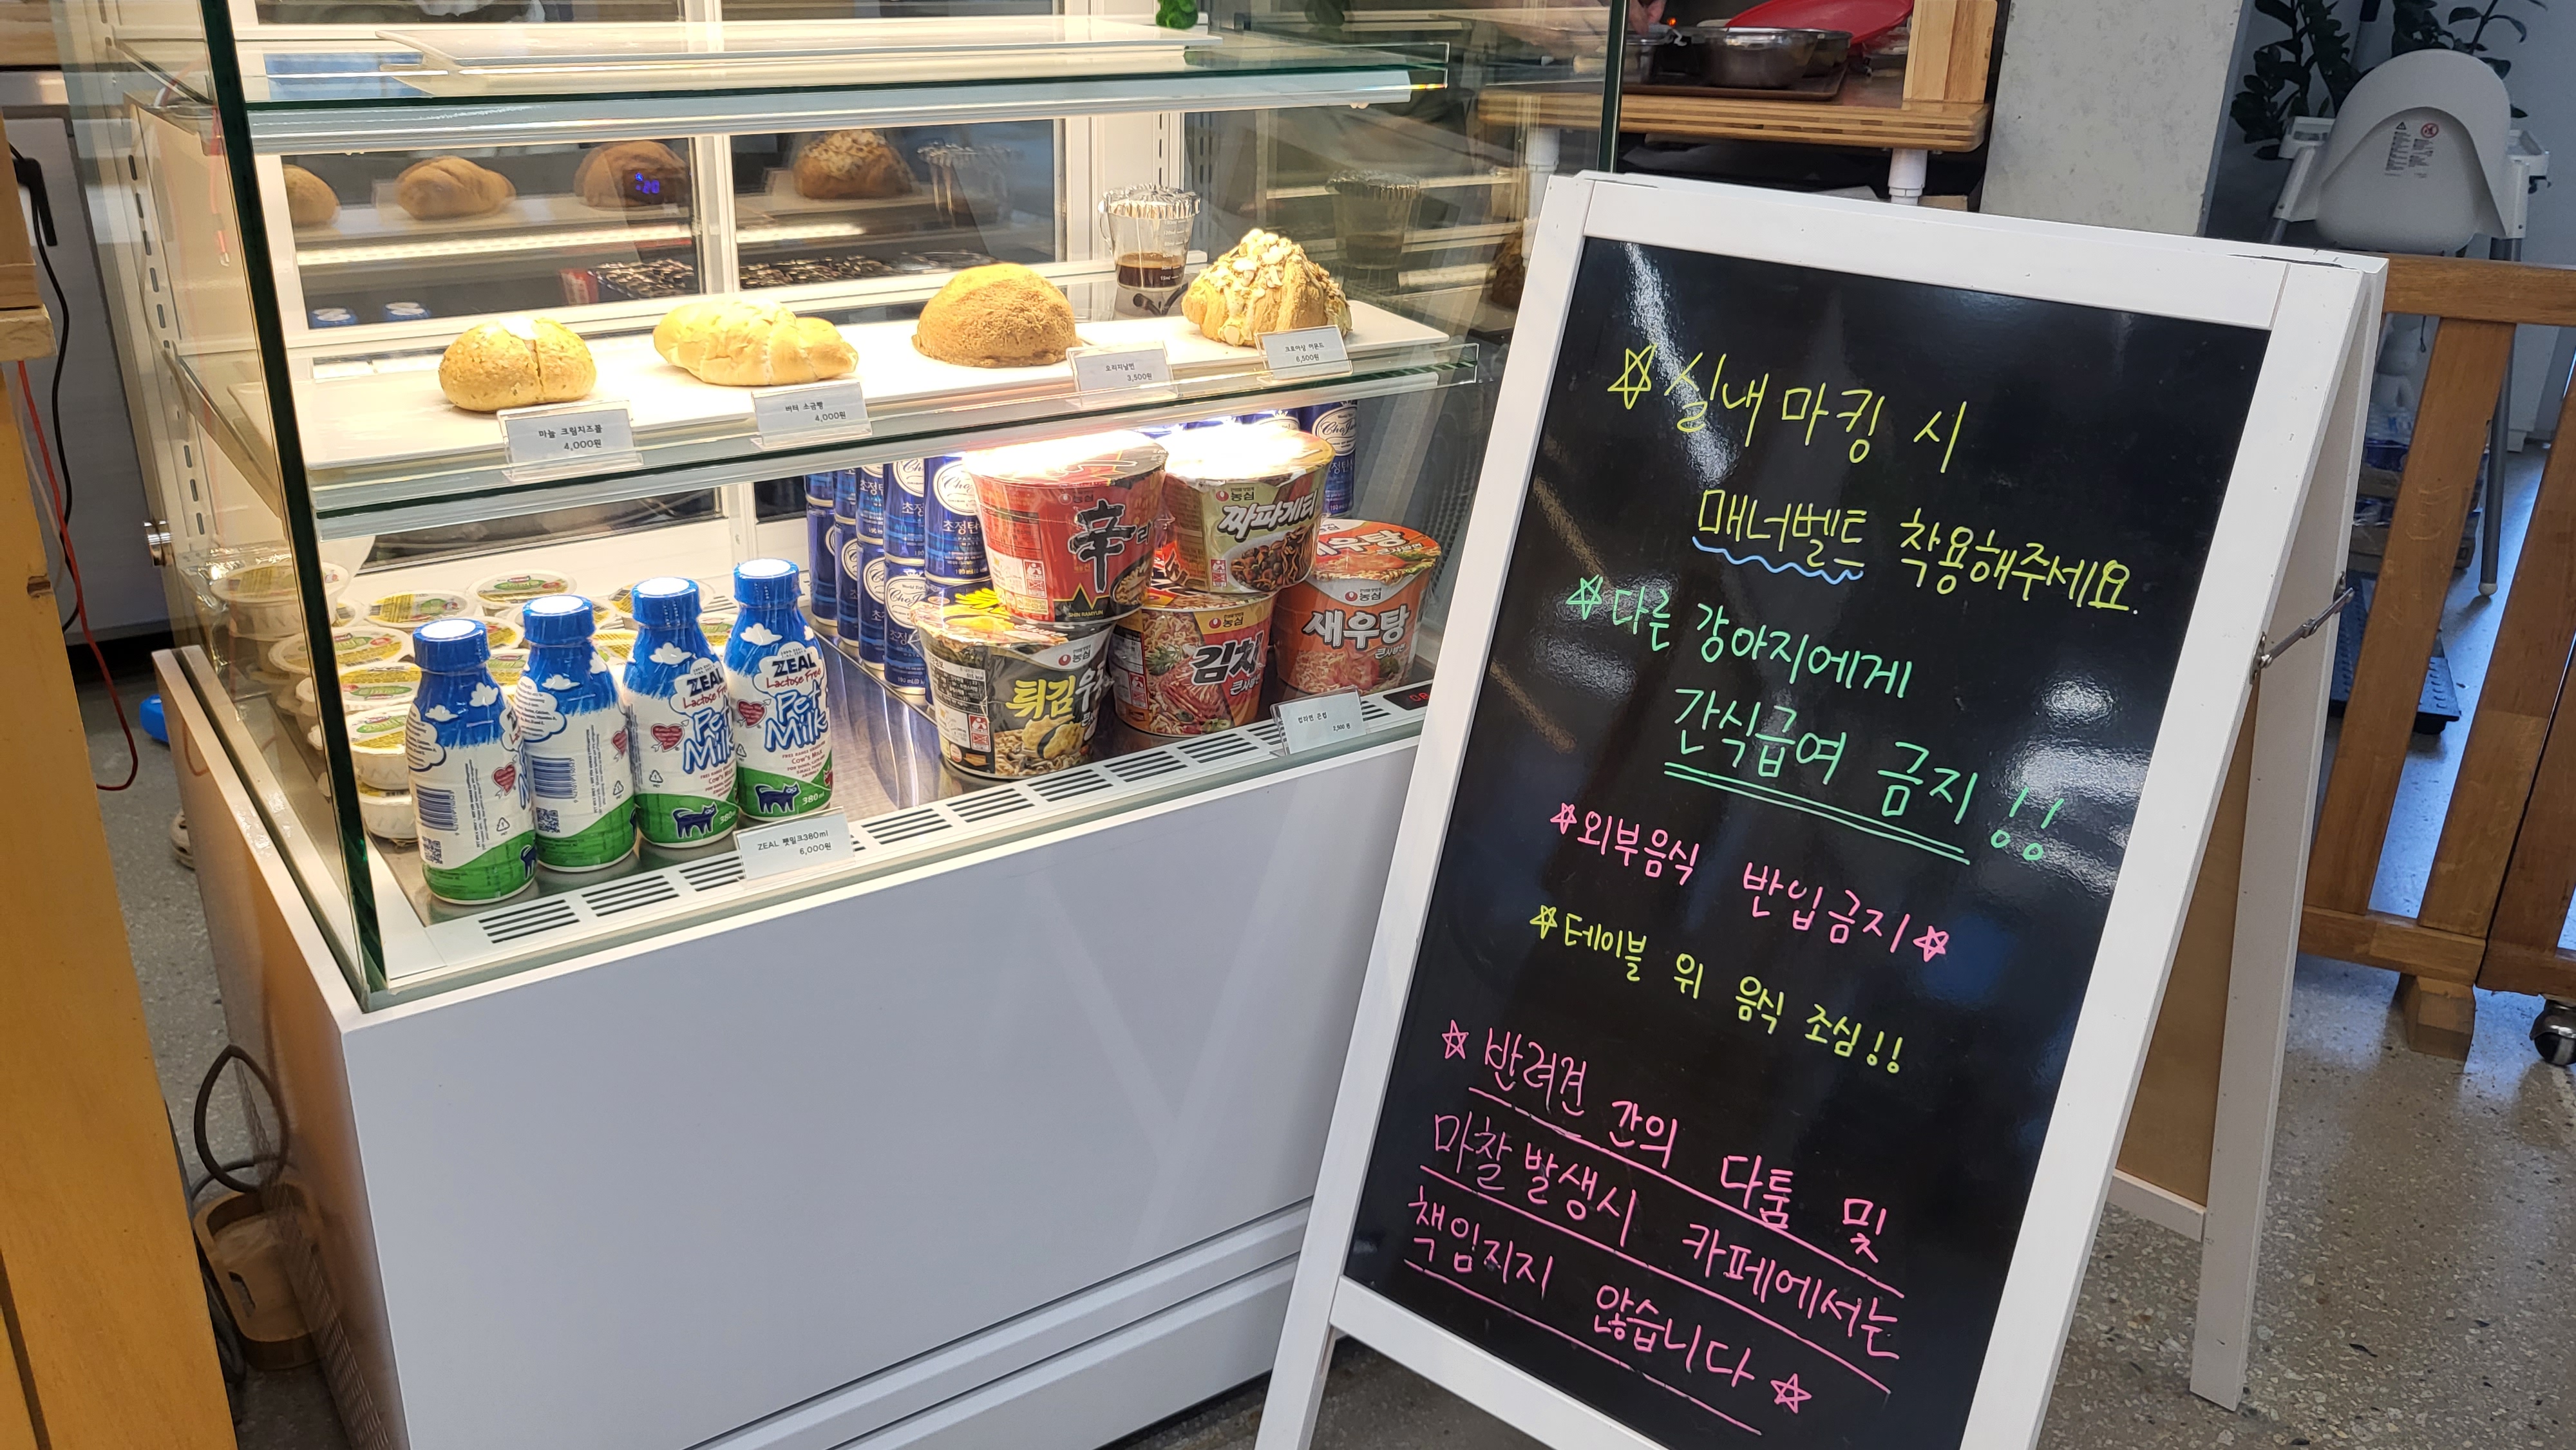 마늘 크림치즈볼
4,000원
버터 소금빵
4,000원
오리지널번
3,500원
크로아상 아몬드
6,500원
초정탄
농심
辛라
SHIN RAMYUN
농심
짜파게티
새우탕
농심
새우탕
큰사발면
농심
김치
큰사발
농심
튀김우
컵라면 큰컵
ZEAL
Lactose Free
Pet
Milk
380ml
ZEAL
Lactose Free
Pet
Milk
Cow's Milk
380ml
ZEAL 펫밀크380ml
6,000원
☆실내 마킹 시
매너벨트 착용해주세요.
☆다른 강아지에게
간식급여 금지!!
☆외부음식 반입금지☆
☆테이블 위 음식 조심!!
☆반려견 간의 다툼 및
마찰 발생시 카페에서는
책임지지 않습니다☆